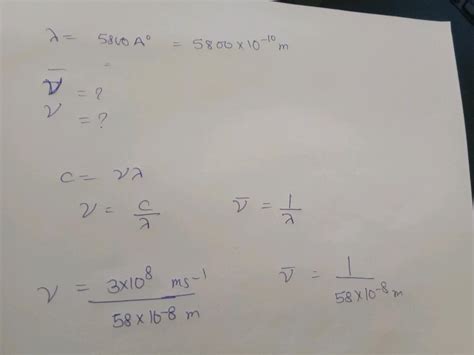 λ = 5800 A° = 5800 × 10⁻¹⁰ m
ν̄ = ?
ν = ?
c = νλ
ν = c/λ ν̄ = 1/λ
ν = 3×10⁸ ms⁻¹ / 58 × 10⁻⁸ m ν̄ = 1 / 58×10⁻⁸ m